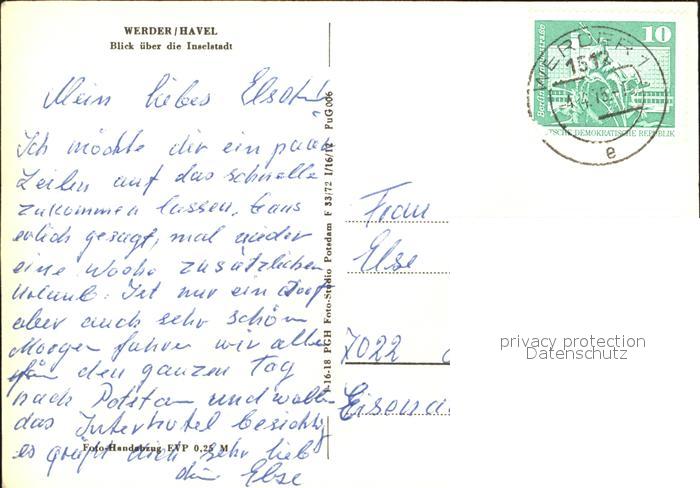 WERDER/HAVEL
Blick über die Inselstadt
Mein liebes
Ich möchte dir ein paar
Zeilen auf das schnelle
zukommen lassen, Ganz
erlich gesagt, mal wieder
eine Woche zusätzlichen
Urlaub. Ist nur ein Dorf
aber auch sehr schön
Morgen fahren wir alle
für den ganzen Tag
nach Potsdam und wollen
das Interhotel besichtig
es grüßt dich sehr lieb
Foto-Handabzug EVP 0,25 M
die Else
I-16-18 PGH Foto-Studio Potsdam F 33/72 I/16/12 PuG 006
Frau
Else
7022
Eisena
10
Berlin
SCHE DEMOKRATISCHE REPUBLIK
WERDER 1
1512
e
privacy protection
Datenschutz